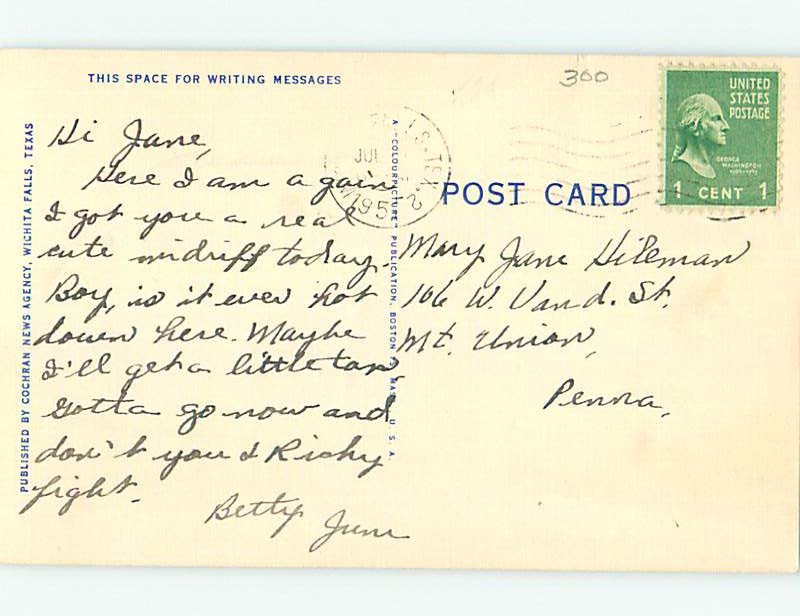 THIS SPACE FOR WRITING MESSAGES
300
UNITED
STATES
POSTAGE
GEORGE
WASHINGTON
1 CENT 1
JUL
195
TEX.
POST CARD
PUBLISHED BY COCHRAN NEWS AGENCY, WICHITA FALLS, TEXAS
A "COLOURPICTURE" PUBLICATION, BOSTON U. S. A.
Hi Jane,
Here I am again
I got you a real
cute midriff today.
Boy, is it ever hot
down here. Maybe
I'll get a little tan
Gotta go now and
don't you & Richy
fight.
Betty June
Mary Jane Hileman
106 W. Vand. St.
Mt. Union,
Penna,